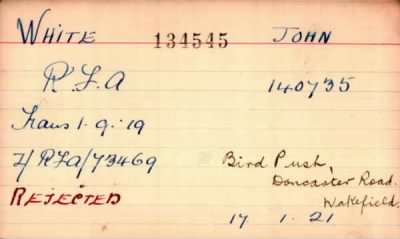 WHITE 134545 JOHN
R.F.A 140735
Trans 1.9.19
4/RFA/73469 Bird Push,
Doncaster Road.
REJECTED Wakefield.
17 1. 21